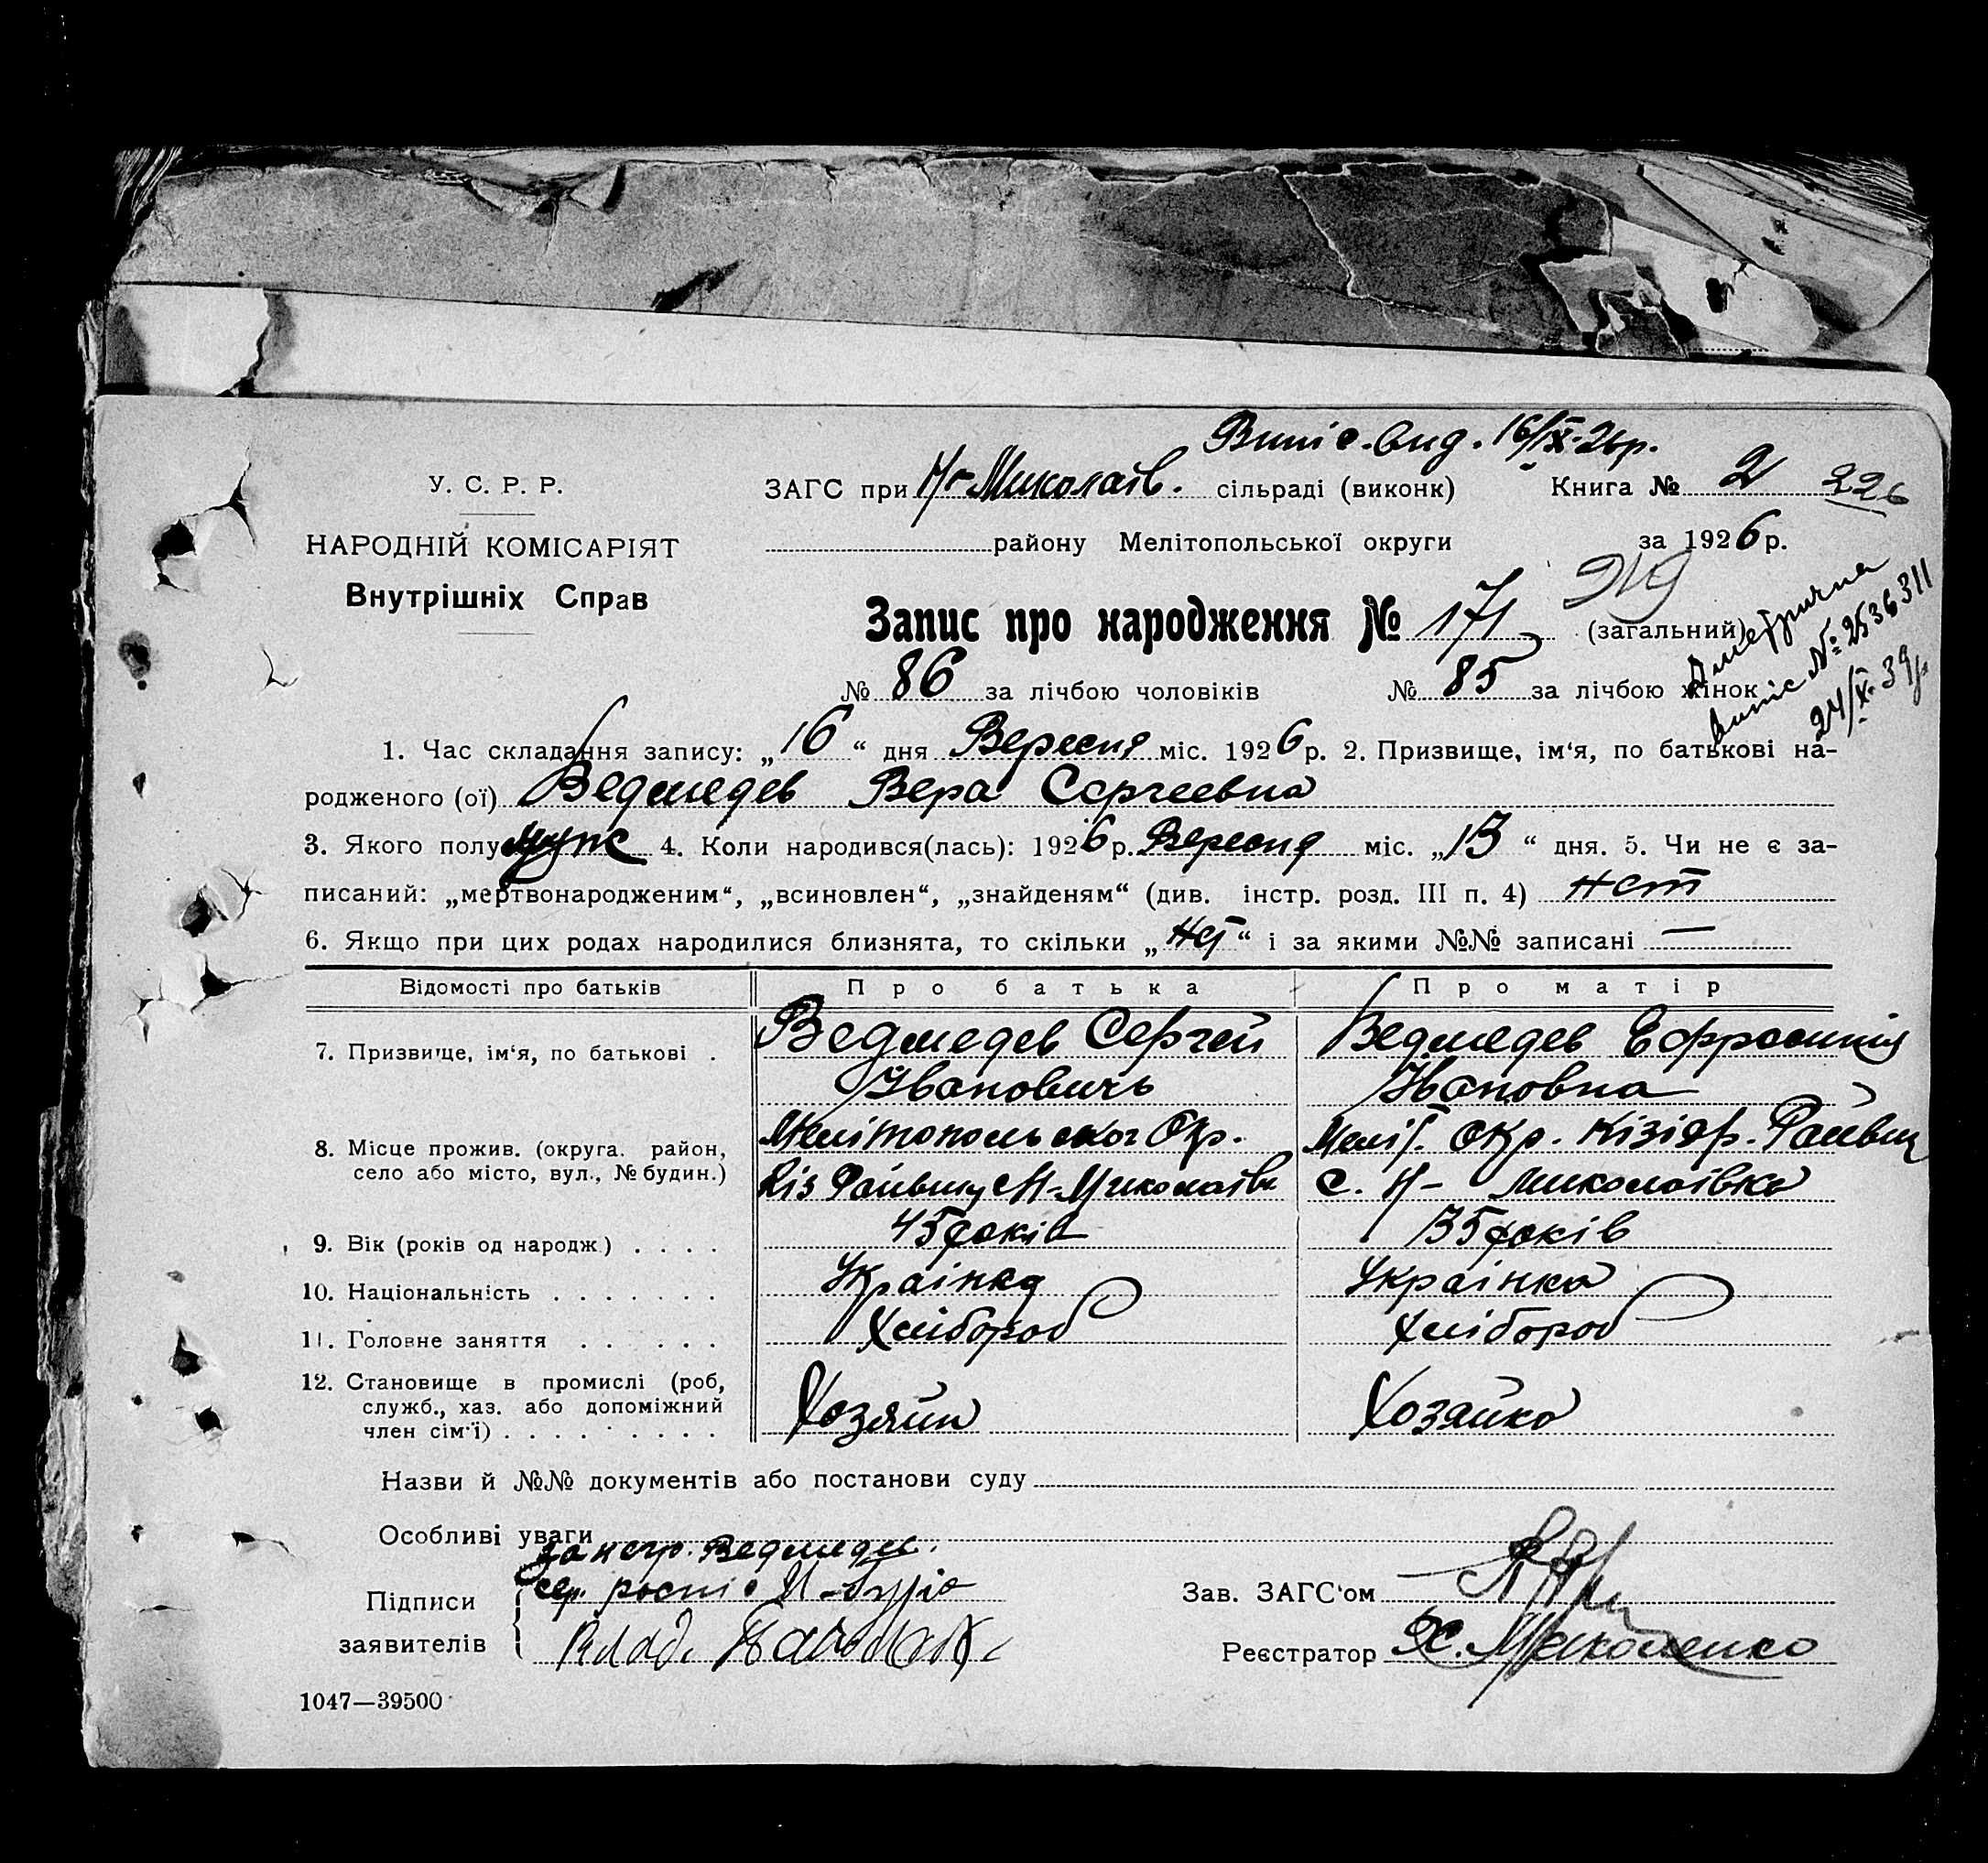 Випіс. вид. 16/IX-26р.
У. С. Р. Р. ЗАГС при Н-Миколаїв. сільраді (виконк) Книга № 2 226
НАРОДНІЙ КОМІСАРІЯТ району Мелітопольської округи за 1926 р.
Внутрішніх Справ
Запис про народження № 171 (загальний)
Метрична
випис № 2536311
24/X 39р
№ 86 за лічбою чоловіків № 85 за лічбою жінок
1. Час складання запису: „16“ дня Вересня міс. 1926 р. 2. Призвище, ім‘я, по батькові на-
родженого (ої) Ведмедев Вера Сергеевна
3. Якого полу муж 4. Коли народився(лась): 1926 р. Вересня міс. „13“ дня. 5. Чи не є за-
писаний: „мертвонародженим“, „всиновлен“, „знайденям“ (див. інстр. розд. III п. 4) нет
6. Якщо при цих родах народилися близнята, то скільки „нет“ і за якими №№ записані —
Відомості про батьків Про батька Про матір
7. Призвище, ім‘я, по батькові . Ведмедев Сергей Ведмедев Ефросиния
Ивановичъ Ивановна
8. Місце прожив. (округа. район, Мелітопольської Окр. Меліт. Окр. Кізіяр. Району
село або місто, вул., № будин.) Кіз Району Н-Миколаївк с. Н- Миколаївка
9. Вік (років од народж) . . . . 45 років 35 років
10. Національність . . . . . . . Українка Українка
11. Головне заняття . . . . . . Хлібороб Хлібороб
12. Становище в промислі (роб,
служб., хаз. або допоміжний Хозяйн Хозяйка
член сім‘ї) . . . . . . . . .
Назви й №№ документів або постанови суду
Особливі уваги
за негр. Ведмедев.
Підписи
заявителів
Зав. ЗАГС‘ом
Реєстратор Х. Миколенко
1047—39500